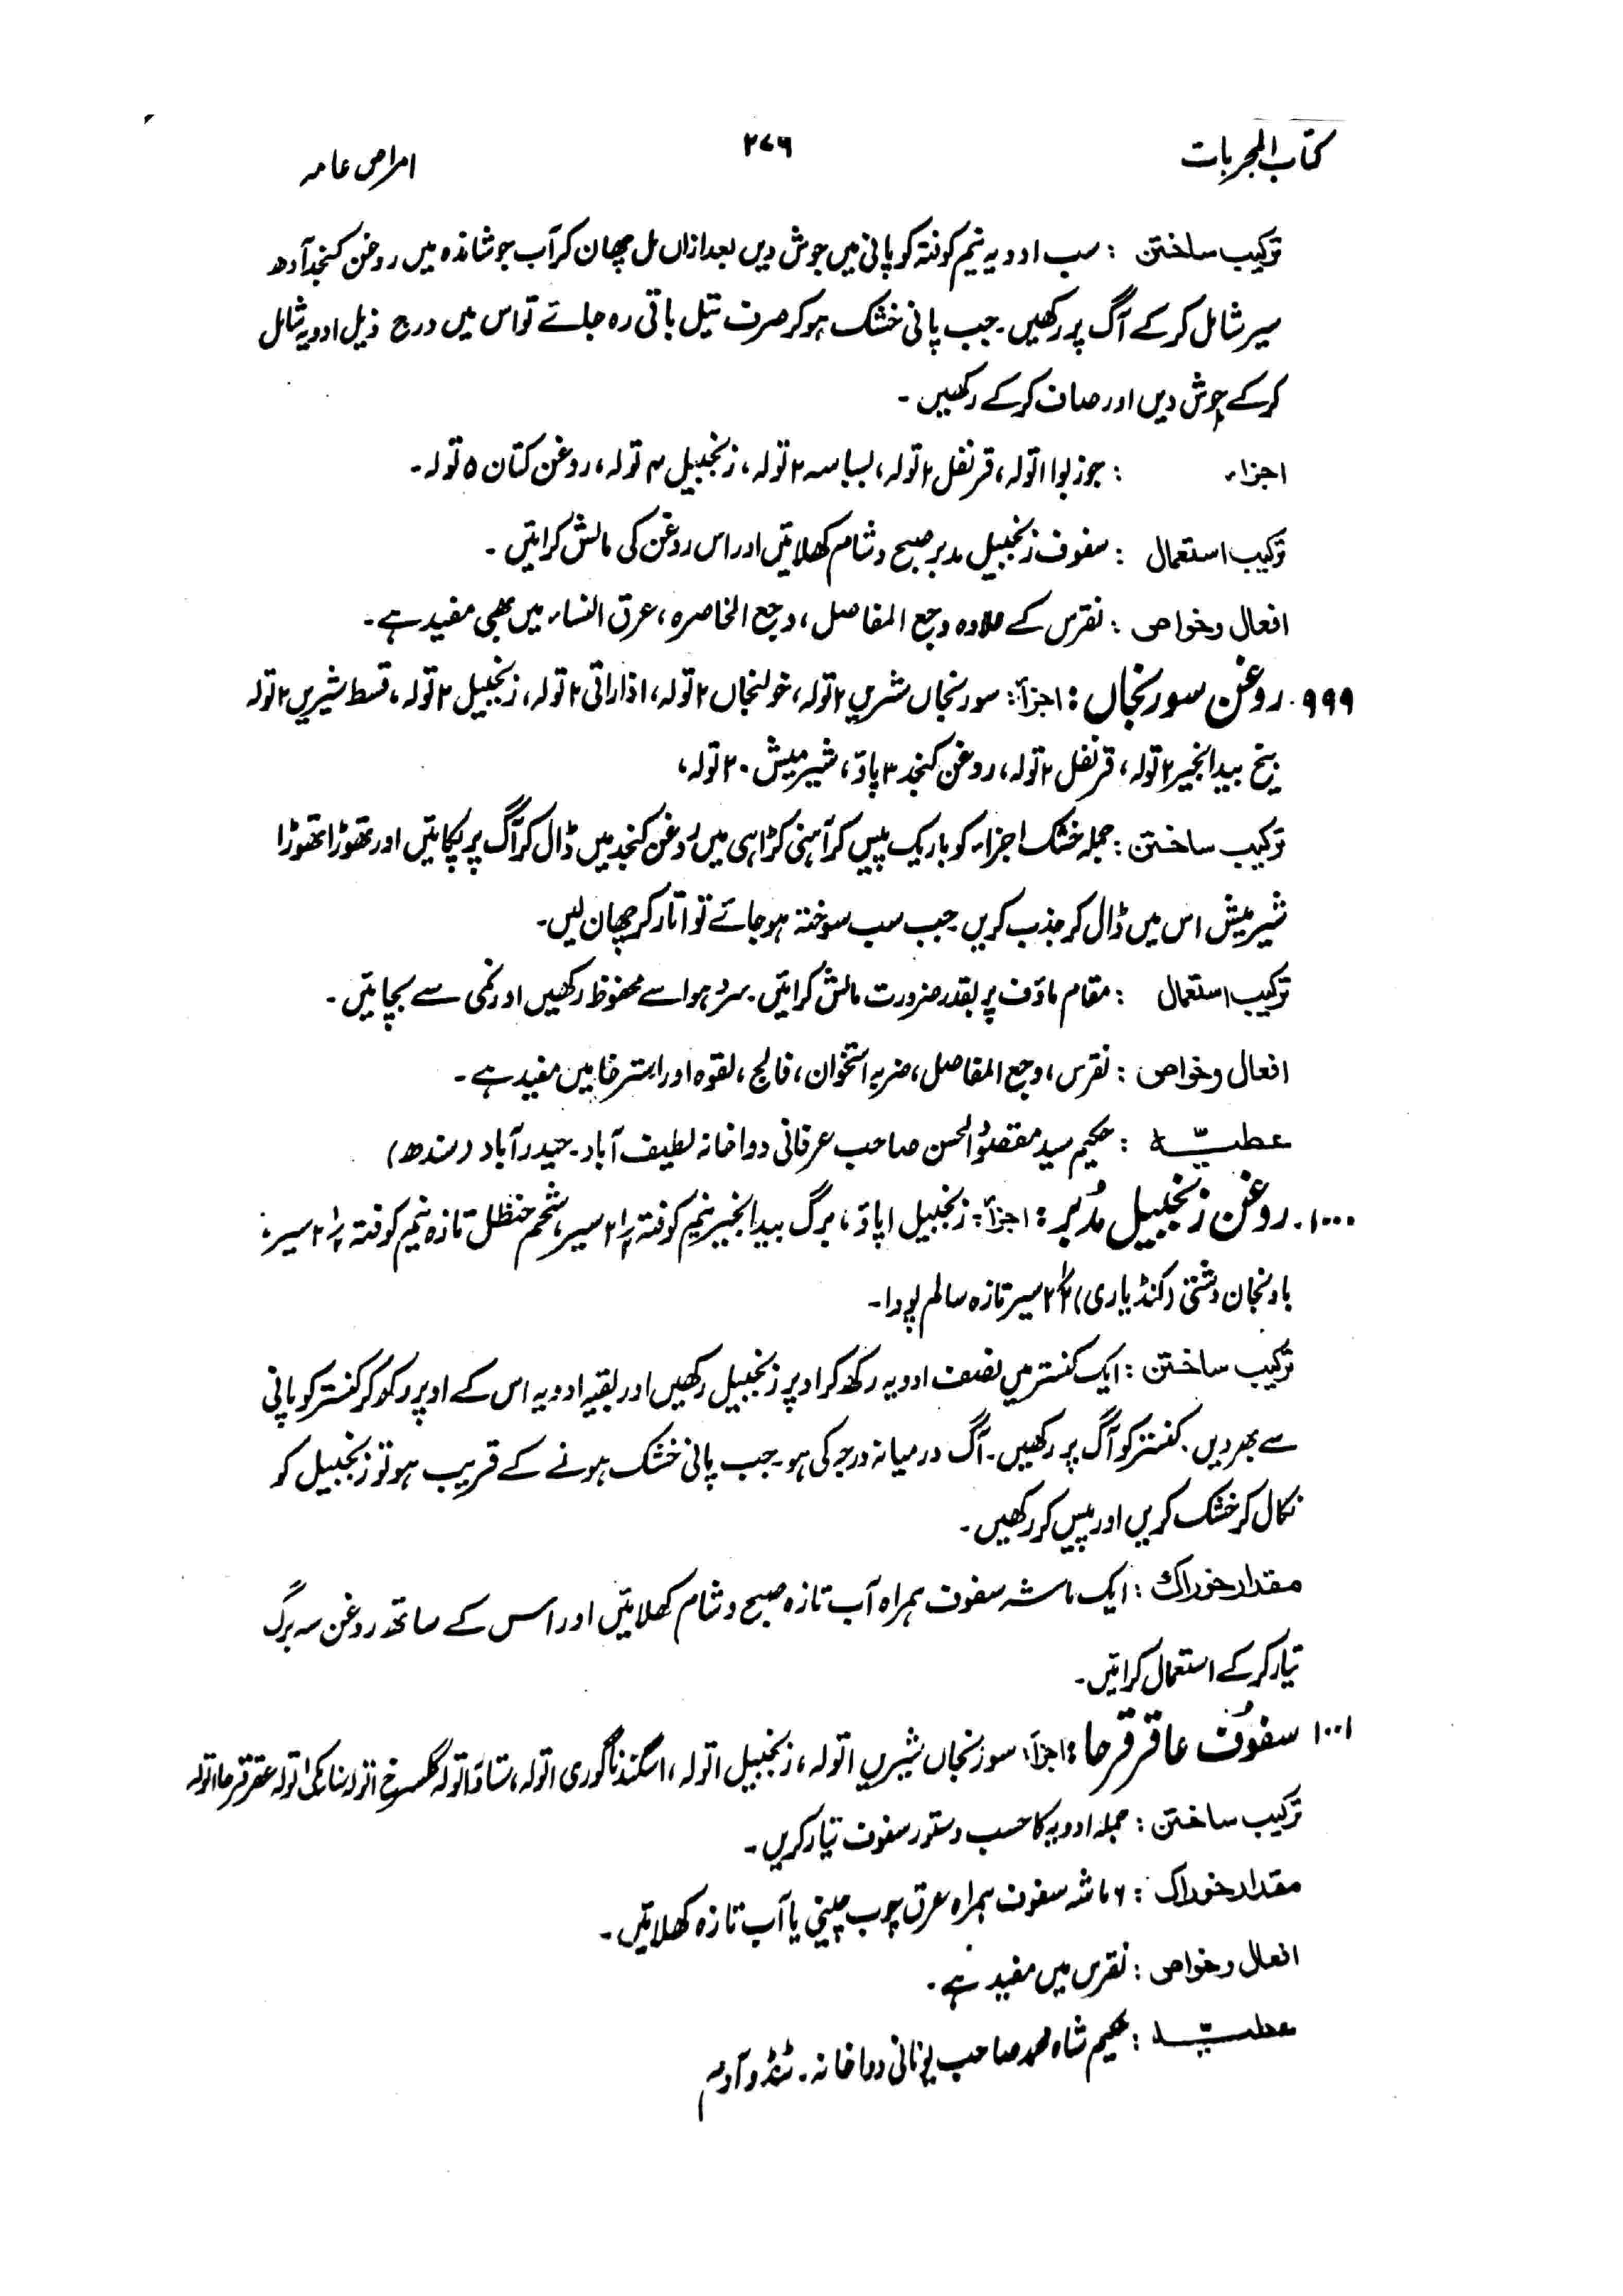 کتاب المجربات
۲۷۶
امراض عامہ
ترکیب ساختن : سب ادویہ نیم کوفتہ کو پانی میں جوش دیں بعد ازاں مل چھان کر آب جوشاندہ میں روغن کنجد آدھ
سیر شامل کر کے آگ پر رکھیں۔ جب پانی خشک ہو کر صرف تیل باقی رہ جائے تو اس میں درج ذیل ادویہ شامل
کر کے جوش دیں اور صاف کر کے رکھیں۔
اجزاء : جوز بوا ۱ تولہ، قرنفل ۲ تولہ، بسباسہ ۲ تولہ، زنجبیل ۳ تولہ، روغن کتان ۵ تولہ۔
ترکیب استعمال : سفوف زنجبیل مدبر صبح و شام کھلائیں اور اس روغن کی مالش کرائیں۔
افعال و خواص : نقرس کے علاوہ وجع المفاصل، وجع الخاصرہ، عرق النساء میں بھی مفید ہے۔
۹۹۹۔ روغن سورنجاں : اجزأ: سورنجاں شیریں ۲ تولہ، خولنجاں ۲ تولہ، اذاراقی ۲ تولہ، زنجبیل ۲ تولہ، قسط شیریں ۲ تولہ
بیخ بید انجیر ۲ تولہ، قرنفل ۲ تولہ، روغن کنجد ۳ پاؤ، شیر میش ۲۰ تولہ،
ترکیب ساختن : جملہ خشک اجزاء کو باریک پیس کر آہنی کڑاہی میں روغن کنجد میں ڈال کر آگ پر پکائیں اور تھوڑا تھوڑا
شیر میش اس میں ڈال کر جذب کریں جب سب سوختہ ہو جائے تو اتار کر چھان لیں۔
ترکیب استعمال : مقام ماؤف پر بقدر ضرورت مالش کرائیں۔ سرد ہوا سے محفوظ رکھیں اور نمی سے بچائیں۔
افعال و خواص : نقرس، وجع المفاصل، ضربہ استخوان، فالج، لقوہ اور استرخا میں مفید ہے۔
عطیہ : حکیم سید مقصود الحسن صاحب عرفانی دواخانہ لطیف آباد۔ حیدر آباد (سندھ)
۱۰۰۰۔ روغن زنجبیل مُدبر : اجزأ: زنجبیل ۱ پاؤ، برگ بید انجیر نیم کوفتہ ۲½ سیر، شحم حنظل تازہ نیم کوفتہ ۲½ سیر،
بادنجان دشتی (کنڈیاری) ۲½ سیر تازہ سالم پودا۔
ترکیب ساختن : ایک کنستر میں نصف ادویہ رکھ کر اوپر زنجبیل رکھیں اور بقیہ ادویہ اس کے اوپر رکھ کر کنستر کو پانی
سے بھر دیں۔ کنستر کو آگ پر رکھیں۔ آگ درمیانہ درجہ کی ہو۔ جب پانی خشک ہونے کے قریب ہو تو زنجبیل کو
نکال کر خشک کریں اور پیس کر رکھیں۔
مقدار خوراک : ایک ماشہ سفوف ہمراہ آب تازہ صبح و شام کھلائیں اور اس کے ساتھ روغن سہ برگ
تیار کر کے استعمال کرائیں۔
۱۰۰۱ سفوف عاقر قرحا : اجزأ: سورنجاں شیریں ۱ تولہ، زنجبیل ۱ تولہ، اسگند ناگوری ۱ تولہ، ستاور ۱ تولہ گلسرخ ۱ تولہ سنا مکی ۱ تولہ عقر قرحا ۱ تولہ
ترکیب ساختن : جملہ ادویہ کا حسب دستور سفوف تیار کریں۔
مقدار خوراک : ۶ ماشہ سفوف ہمراہ عرق چوب چینی یا آب تازہ کھلائیں۔
افعال و خواص : نقرس میں مفید ہے۔
عطیہ : حکیم شاہ محمد صاحب یونانی دواخانہ۔ ٹنڈو آدم